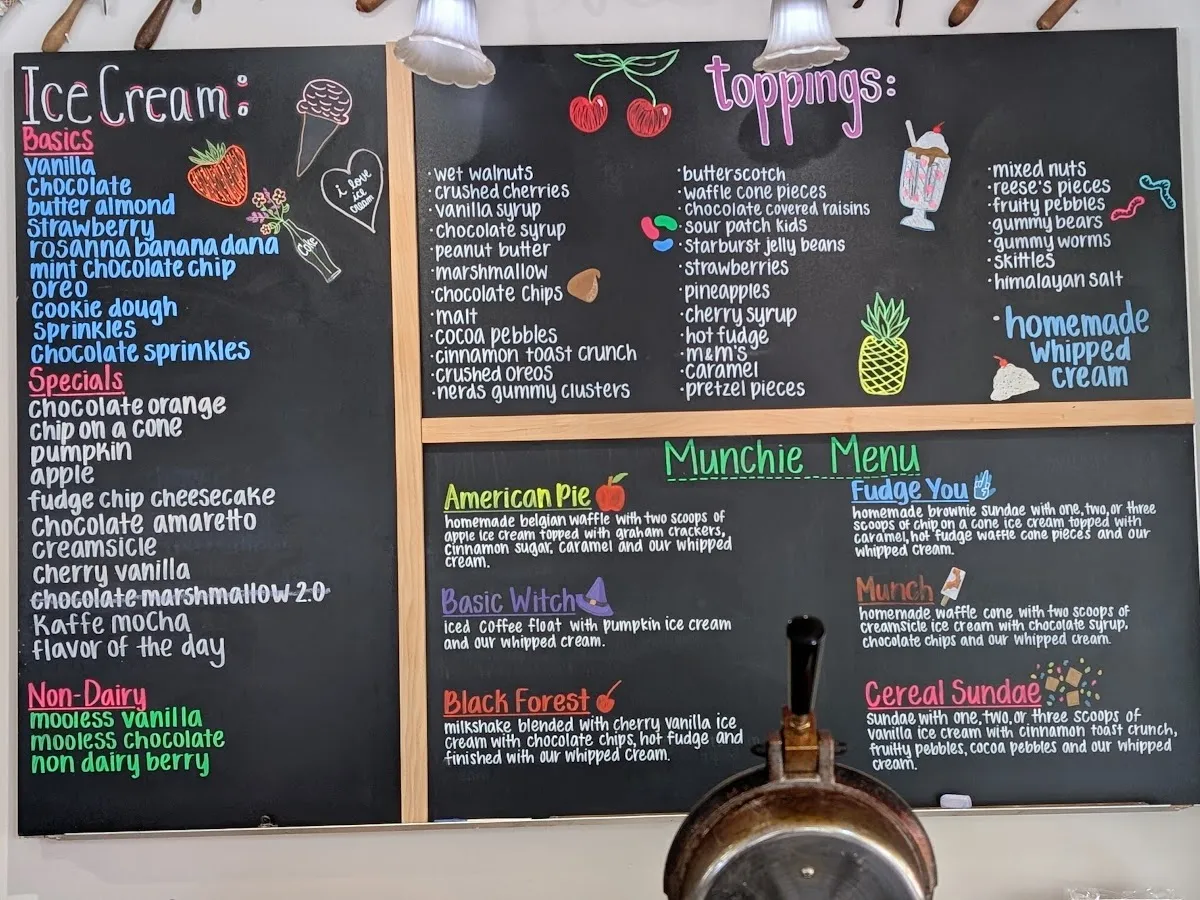 Ice Cream:
Basics
vanilla
chocolate
butter almond
strawberry
rosanna banana dana
mint chocolate chip
oreo
cookie dough
sprinkles
chocolate sprinkles
Specials
chocolate orange
chip on a cone
pumpkin
apple
fudge chip cheesecake
chocolate amaretto
creamsicle
cherry vanilla
chocolate marshmallow 2.0
kaffe mocha
flavor of the day
Non-Dairy
mooless vanilla
mooless chocolate
non dairy berry
i love
ice
cream
Coke
toppings:
·wet walnuts
·crushed cherries
·vanilla syrup
·chocolate syrup
·peanut butter
·marshmallow
·chocolate chips
·malt
·cocoa pebbles
·cinnamon toast crunch
·crushed oreos
·nerds gummy clusters
·butterscotch
·waffle cone pieces
·chocolate covered raisins
·sour patch kids
·starburst jelly beans
·strawberries
·pineapples
·cherry syrup
·hot fudge
·m&m's
·caramel
·pretzel pieces
·mixed nuts
·reese's pieces
·fruity pebbles
·gummy bears
·gummy worms
·skittles
·himalayan salt
·homemade
whipped
cream
Munchie Menu
American Pie
homemade belgian waffle with two scoops of
apple ice cream topped with graham crackers,
cinnamon sugar, caramel and our whipped
cream.
Basic Witch
iced coffee float with pumpkin ice cream
and our whipped cream.
Black Forest
milkshake blended with cherry vanilla ice
cream with chocolate chips, hot fudge and
finished with our whipped cream.
Fudge You
homemade brownie sundae with one, two, or three
scoops of chip on a cone ice cream topped with
caramel, hot fudge waffle cone pieces and our
whipped cream.
Munch
homemade waffle cone with two scoops of
creamsicle ice cream with chocolate syrup,
chocolate chips and our whipped cream.
Cereal Sundae
sundae with one, two, or three scoops of
vanilla ice cream with cinnamon toast crunch,
fruity pebbles, cocoa pebbles and our whipped
cream.